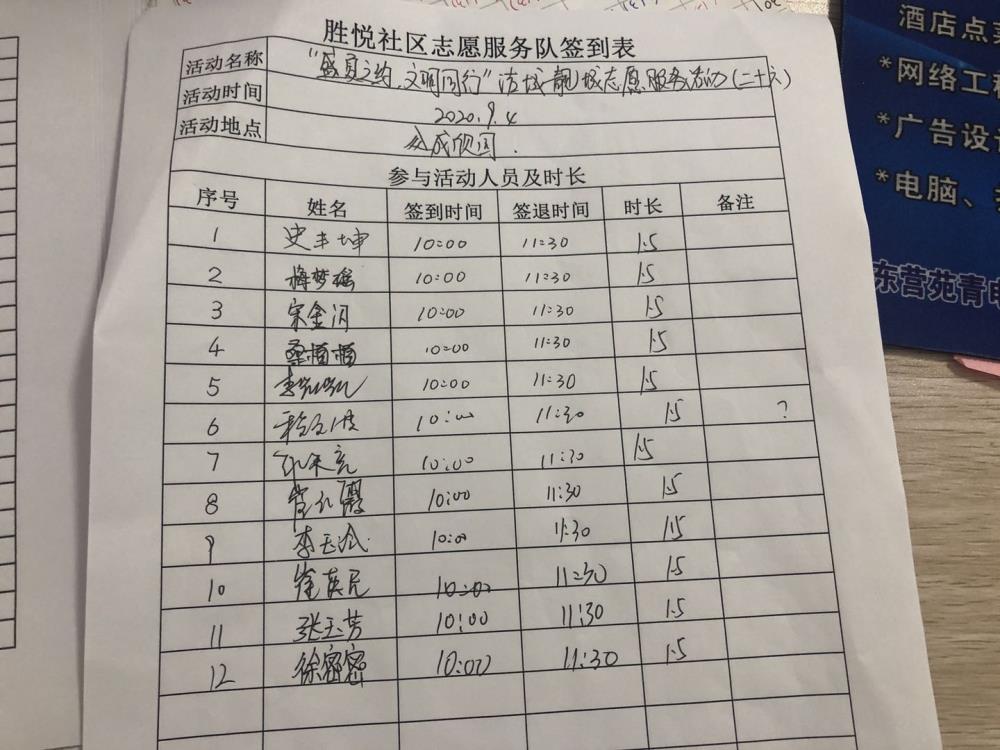 胜悦社区志愿服务队签到表
活动名称 "盛夏之约,文明同行"洁城靓城志愿服务活动(二十六)
活动时间 2020.9.4
活动地点 众成欣园.
参与活动人员及时长
序号 姓名 签到时间 签退时间 时长 备注
1 史丰坤 10:00 11:30 1.5
2 梅梦瑶 10:00 11:30 1.5
3 宋金闪 10:00 11:30 1.5
4 桑楠楠 10:00 11:30 1.5
5 10:00 11:30 1.5
6 10:00 11:30 1.5 ?
7 10:00 11:30 1.5
8 10:00 11:30 1.5
9 李玉 10:00 11:30 1.5
10 崔英 10:00 11:30 1.5
11 张玉芳 10:00 11:30 1.5
12 徐密密 10:00 11:30 1.5
酒店点
*网络工程
*广告设计
*电脑、
东营苑青电